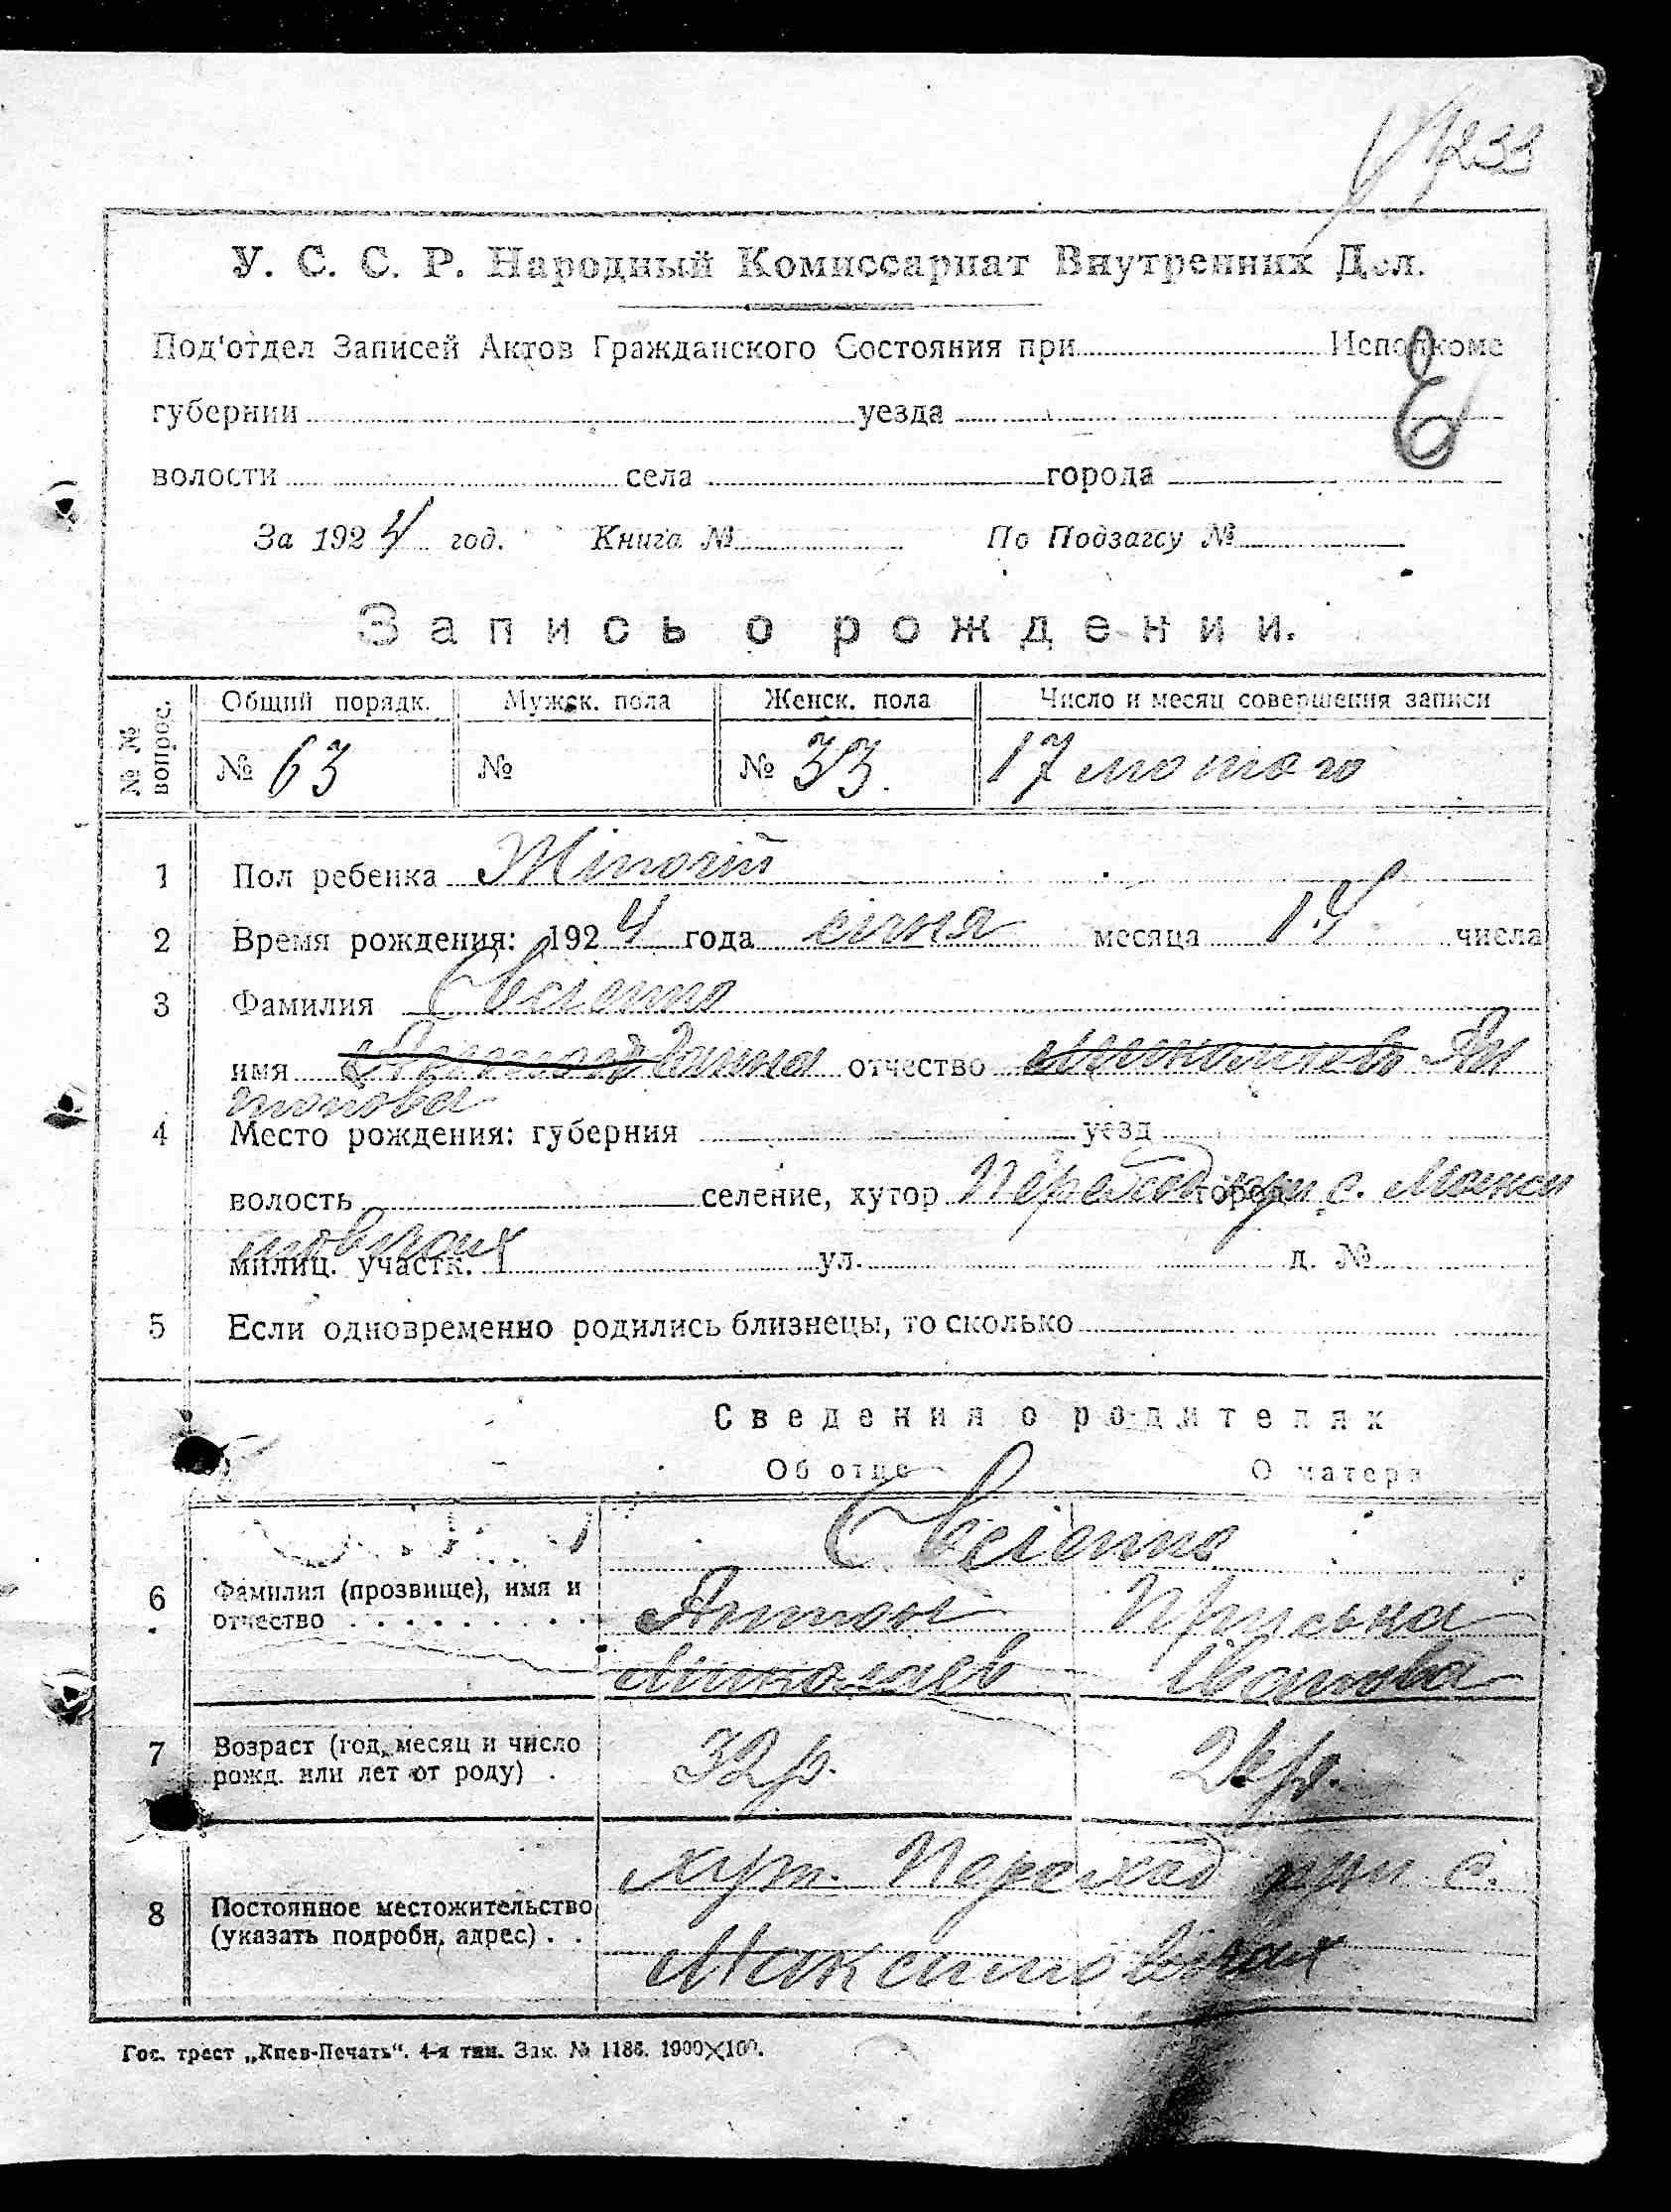 1233
У. С. С. Р. Народный Комиссариат Внутренних Дел.
Под'отдел Записей Актов Гражданского Состояния при Исполкоме
губернии уезда
волости села города
За 1924 год. Книга № По Подзагсу №
Запись о рождении.
№ № вопрос. Общий порядк. Мужск. пола Женск. пола Число и месяц совершения записи
№ 63 № № 33. 17 лютого
1 Пол ребенка Жіночій
2 Время рождения: 1924 года січня месяца 14 числа
3 Фамилия Євсіенко
имя Ганна отчество Ан
тонова
4 Место рождения: губерния уезд
волость селение, хутор город при с. Макси
мовичах
милиц. участк. ул. д. №
5 Если одновременно родились близнецы, то сколько
Сведения о родителях
Об отце О матери
Євсіенко
6 Фамилия (прозвище), имя и
отчество Антон Пруська
Миколаєв Іванова
7 Возраст (год, месяц и число
рожд. или лет от роду) . 32 р. р.
хут. Переїзд при с.
8 Постоянное местожительство
(указать подробн. адрес) . .
Максимовичах
Гос. трест „Киев-Печать“. 4-я тип. Зак. № 1186. 1900×100.